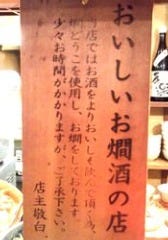 おいしいお燗酒の店
当店ではお酒をよりおいしく飲んで頂く為、
燗どうこを使用し、お燗をしております。
少々お時間がかかりますが、ご了承下さい。
店主敬白